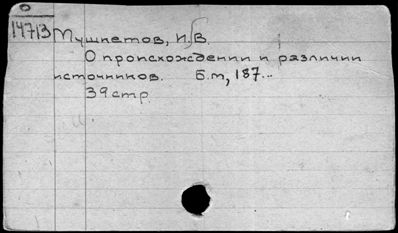 0
14713
Мушкетов, И.В.
О происхождении и различии
источников. Б.м, 187...
39 стр.